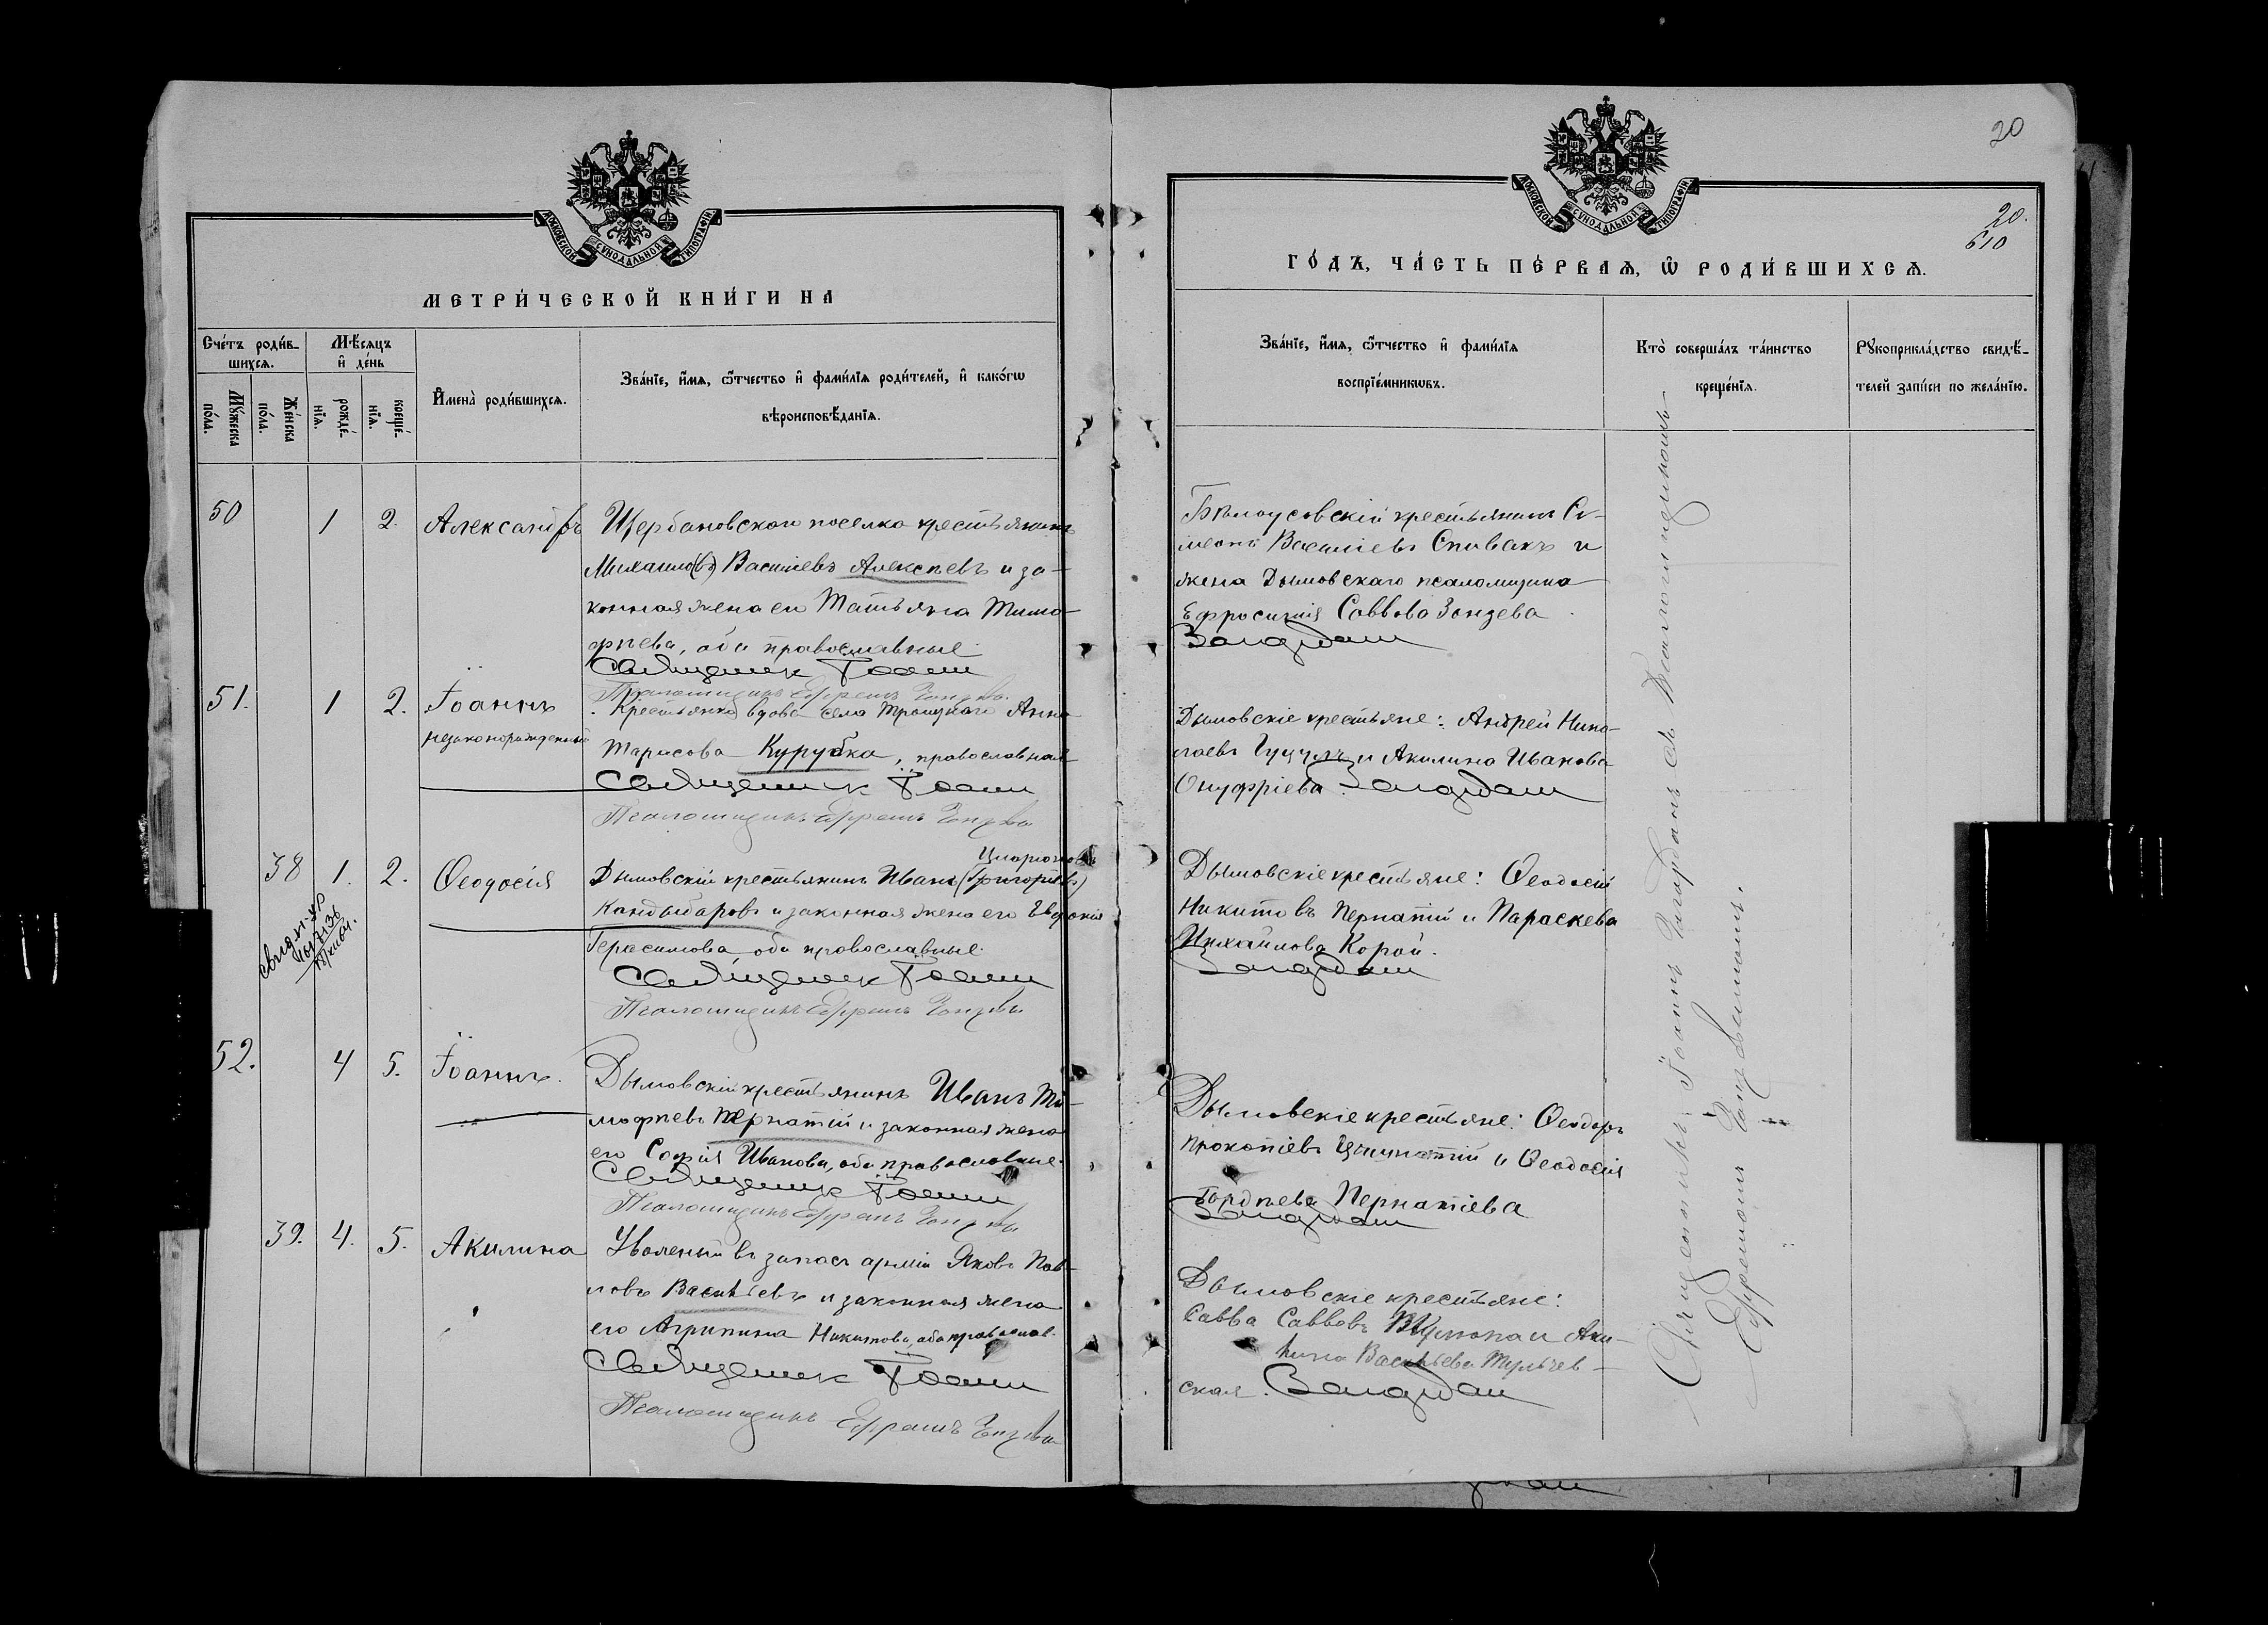 МОСКОВСКОЙ СѴНОДАЛЬНОЙ ТИПОГРАФІИ
МЕТРИ́ЧЕСКОЙ КНИ́ГИ НА
Сче́тъ роди́в-
шихсѧ.
Мѣ́сѧцъ
и҆ де́нь
Мꙋ́жеска
по́ла.
Же́нска
по́ла.
рожде́-
нїѧ.
креще́-
нїѧ.
И҆мена̀ роди́вшихсѧ.
Зва́нїе, и҆́мѧ, ѻ҆́тчество и҆ фами́лїѧ роди́телей, и҆ како́гѡ
вѣроисповѣ́данїѧ.
50 1 2. Александръ Щербановскаго поселка крестьянинъ
Михаило(въ) Васильевъ Алексѣевъ и за-
конная жена его Татьяна Тимо-
фѣева, оба православные
Священник Іоанн
Псаломщикъ Ефремъ
51. 1 2. Іоаннъ Крестьянка вдова села Троицкаго Анна
незаконорожденный
Тарасова Курубка, православная
Священник Іоанн
Псаломщикъ Ефремъ
38 1. 2. Ѳеодосія Дымовскій крестьянинъ Иванъ (Григорьевъ)
Кандыбаровъ и законная жена его Евдокія
Герасимова оба православные.
Священник Іоанн
Псаломщикъ Ефремъ
52. 4 5. Іоаннъ. Дымовскій крестьянинъ Иванъ Ти-
мофѣевъ Пернатій и законная жена
его Софія Иванова, оба православные.
Священник Іоанн
Псаломщикъ Ефремъ
39. 4. 5. Акилина Уволеный въ запасъ арміи Яковъ Пав-
ловъ Васильевъ и законная жена
его Агрипина Никитова, оба православ.
Священник Іоанн
Псаломщикъ Ефремъ
20
МОСКОВСКОЙ СѴНОДАЛЬНОЙ ТИПОГРАФІИ
20.
610
ГО́ДЪ, ЧА́СТЬ ПЕ́РВАѦ, Ѡ҆ РОДИ́ВШИХСѦ.
Зва́нїе, и҆́мѧ, ѻ҆́тчество и҆ фами́лїѧ
воспрїе́мникѡвъ.
Кто̀ соверша́лъ та́инство
креще́нїѧ.
Рꙋкоприкла́дство свидѣ́-
телей за́писи по жела́нїю.
Бѣлоусовскій крестьянинъ Си-
меонъ Василіевъ Спивакъ и
жена Дымовскаго псаломщика
Ефросинія Саввова
Дымовскіе крестьяне: Андрей Нико-
лаевъ Гуцулъ и Акилина Иванова
Онуфріева.
Дымовскіе крестьяне: Ѳеодосій
Никитовъ Пернатій и Параскева
Михайлова Корой.
Дымовскіе крестьяне: Ѳеодоръ
Прокопіевъ и Ѳеодосія
Гордѣева Пернатіева
Дымовскіе крестьяне:
Савва Саввовъ и Аки-
лина Васильева
ская.
Священникъ Іоаннъ съ Псаломщикомъ
Ефремомъ